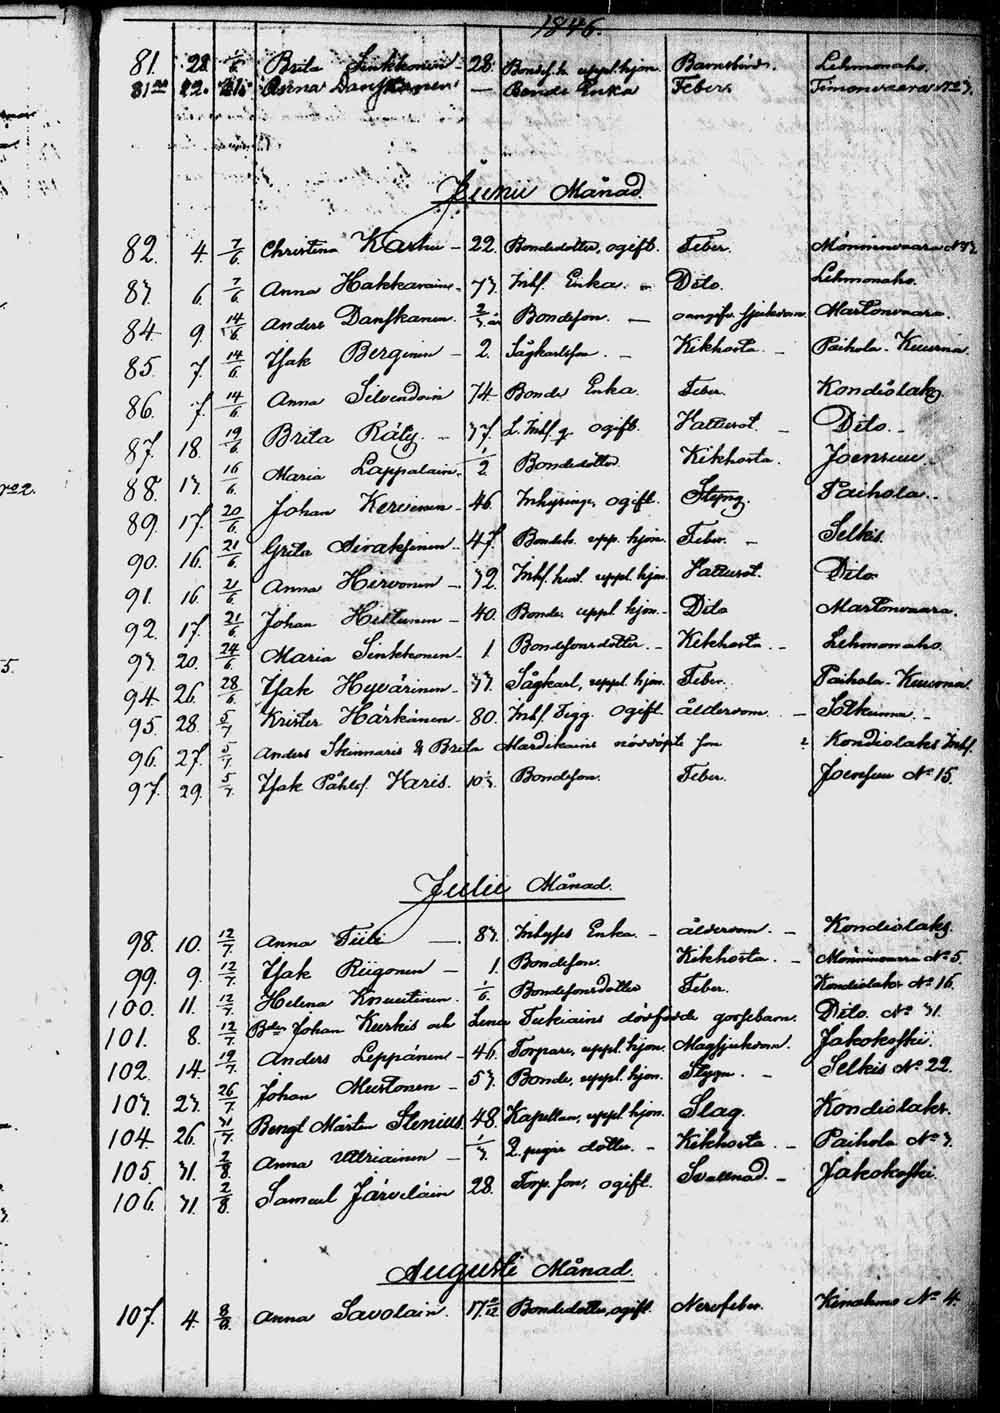 1846.
81. 28. 1/6 Brita Sinkkonen 28. Bondeh. uppl. hjon. Barnsbörd. Lehmonaho.
81 22. Anna Danskanen — Bonde Enka Feber. Timonvaara No 3.
Junii Månad.
82. 4. 7/6 Christina Karhu — 22. Bondedotter, ogift. Feber. Mönninvaara
83. 6. 7/6 Anna Hakkarain — 73. Inhs. Enka. Dito. Lehmonaho.
84 9. 14/6 Anders Danskanen. Bondeson. — oangifv. sjukdom. Martonvaara.
85. 7. 14/6 Isak Berginen — 2. Sågkarlsson. — Kikhosta — Paihola - Kuurna
86. 7. 14/6 Anna Silvendoin 74 Bonde Enka Feber. Kondiolaks
87. 18. 19/6 Brita Räty. 37. ogift. Vattusot. — Dito. —
88. 13. 16/6 Maria Lappalain. 1/2 Bondedotter Kikhosta. Joensuu
89. 17. 20/6 Johan Kervinen — 46. Inhysing, ogift. Styng. Paihola.
90. 16. 21/6 Greta Sivaksinen 47. Bondeh. upp. hjon. Feber. — Selkis
91. 16 21/6 Anna Hirvonen — 32. Inhs. hust. uppl. hjon. Vattusot. Dito
92. 17. 21/6 Johan Hiltunen — 40. Bonde, uppl. hjon. — Dito Martonvaara.
93. 20. 24/6 Maria Sinkkonen — 1. Bondesonsdotter. — Kikhosta. — Lehmonaho.
94. 26. 28/6 Isak Hyvärinen — 33. Sågkarl, uppl. hjon. Feber. Paihola - Kuurna
95. 28. 5/7 Krister Härkänen — 80. Inhs. Tigg. Ogift. ålderdom. — Sotkuma. —
96. 27. 5/7 Anders Skinnaris & Brita Mardikains nöddöpte son Kondiolaks Inhs.
97. 29. 5/7 Isak Påhls. Karis. 10 Bondeson. Feber. Joensuu No 15.
Julii Månad.
98. 10. 12/7 Anna Tiili — 83. Inhyses Enka. — ålderdom. — Kondiolaks.
99. 9. 12/7 Isak Riigonen — 1. Bondeson. Kikhosta. — Mönninvaara No 5.
100. 11. 12/7 Helena Knuutinen. 1/6 Bondesonsdotter Feber. Kondiolaks No 16.
101. 8. 12/7 Johan Kurkis och Lena Tukiains dödfödde gossebarn. Dito. No 31.
102. 14. 19/7 Anders Leppänen — 46. Torpare, uppl. hjon. Magsjukdom. Jakokoski.
103. 23. 26/7 Johan Mustonen — 53. Bonde, uppl. hjon. Styng. — Selkis No 22.
104. 26. 31/7 Bengt Mårten Stenius 48. Kapellan, uppl. hjon. Slag. Kondiolaks.
105. 31. 2/8 Anna Uttriainen — 1/3 dotter. — Kikhosta — Paihola No 3.
106. 31. 2/8 Samuel Järveläin 28. Torp. son, ogift. Svullnad. — Jakokoski.
Augusti Månad.
107. 4. 8/8 Anna Savolain. 17 Bondedotter, ogift. Nervfeber. Kinahmo No 4.